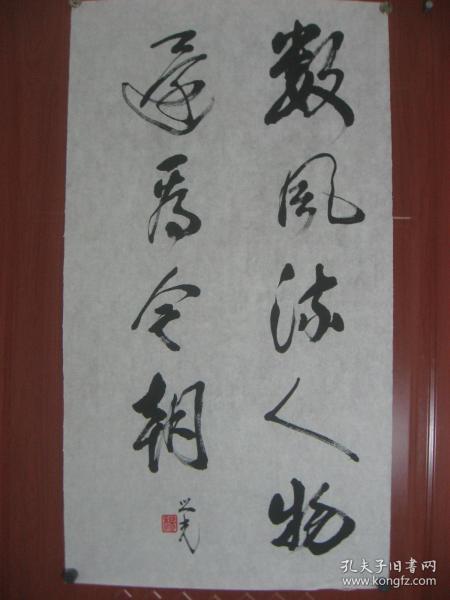 数風流人物
還看今朝
之光
孔夫子旧书网
www.kongfz.com